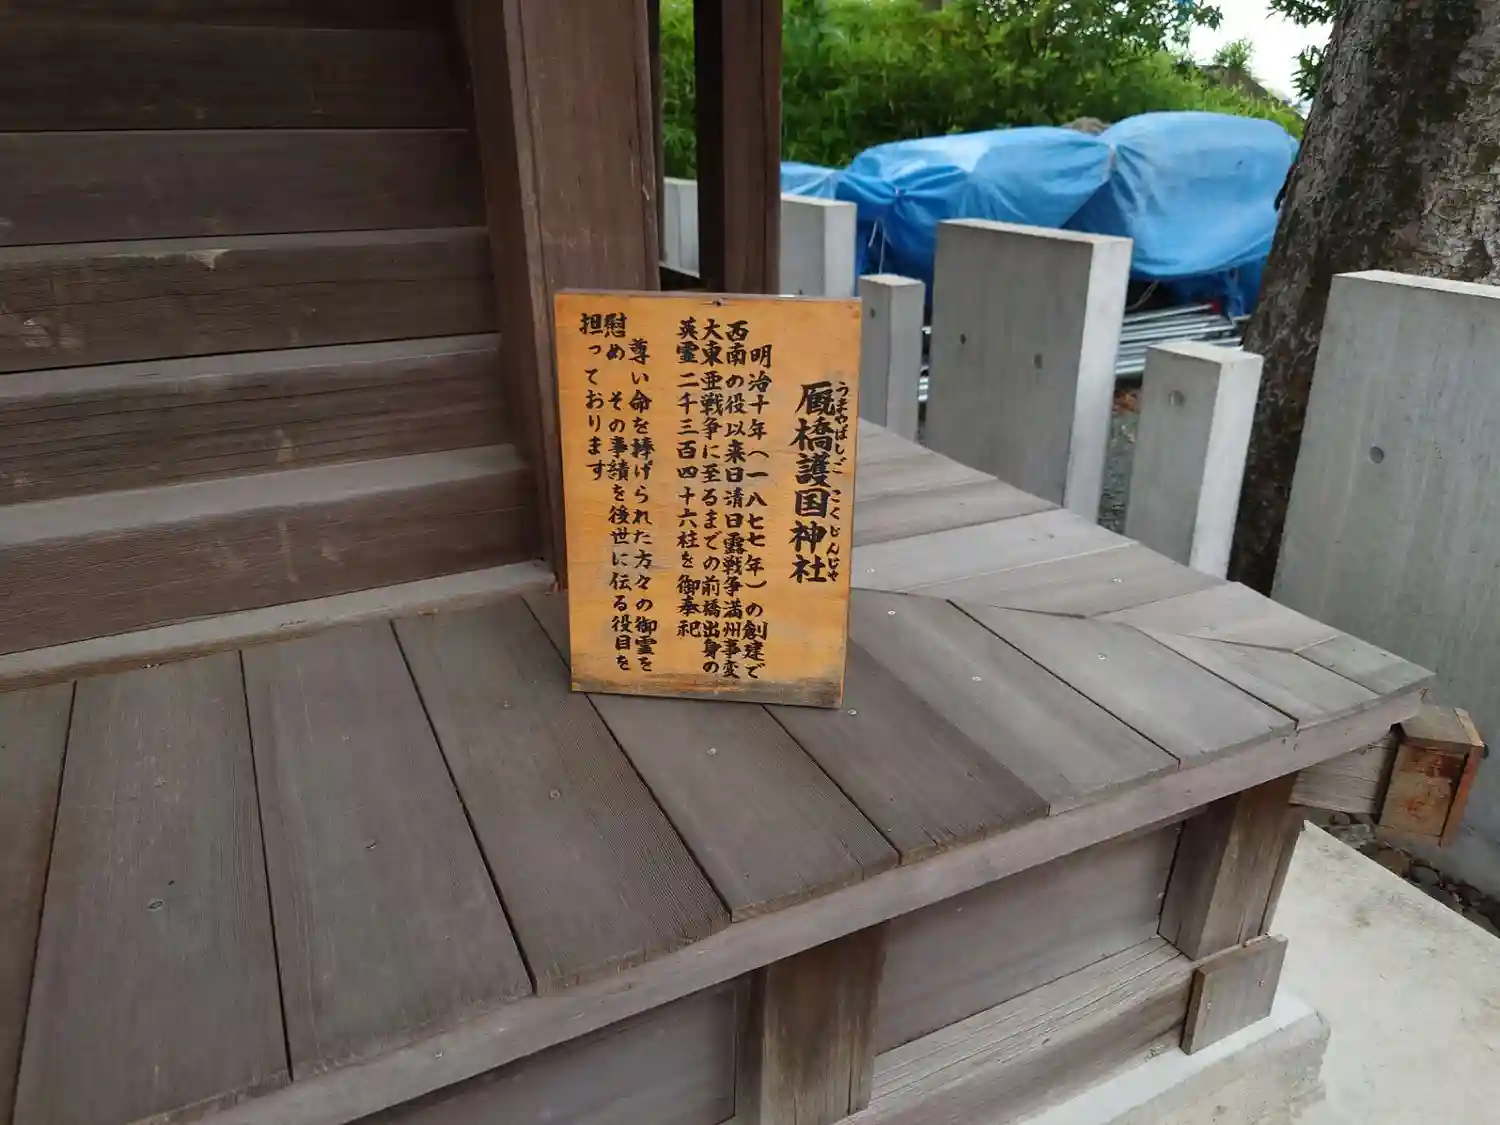 厩橋護国神社
うまやばしご こくじんじゃ
明治十年(一八七七年)の創建で
西南の役以来日清日露戦争満州事変
大東亜戦争に至るまでの前橋出身の
英霊二千三百四十六柱を御奉祀
尊い命を捧げられた方々の御霊を
慰め その事績を後世に伝る役目を
担っております